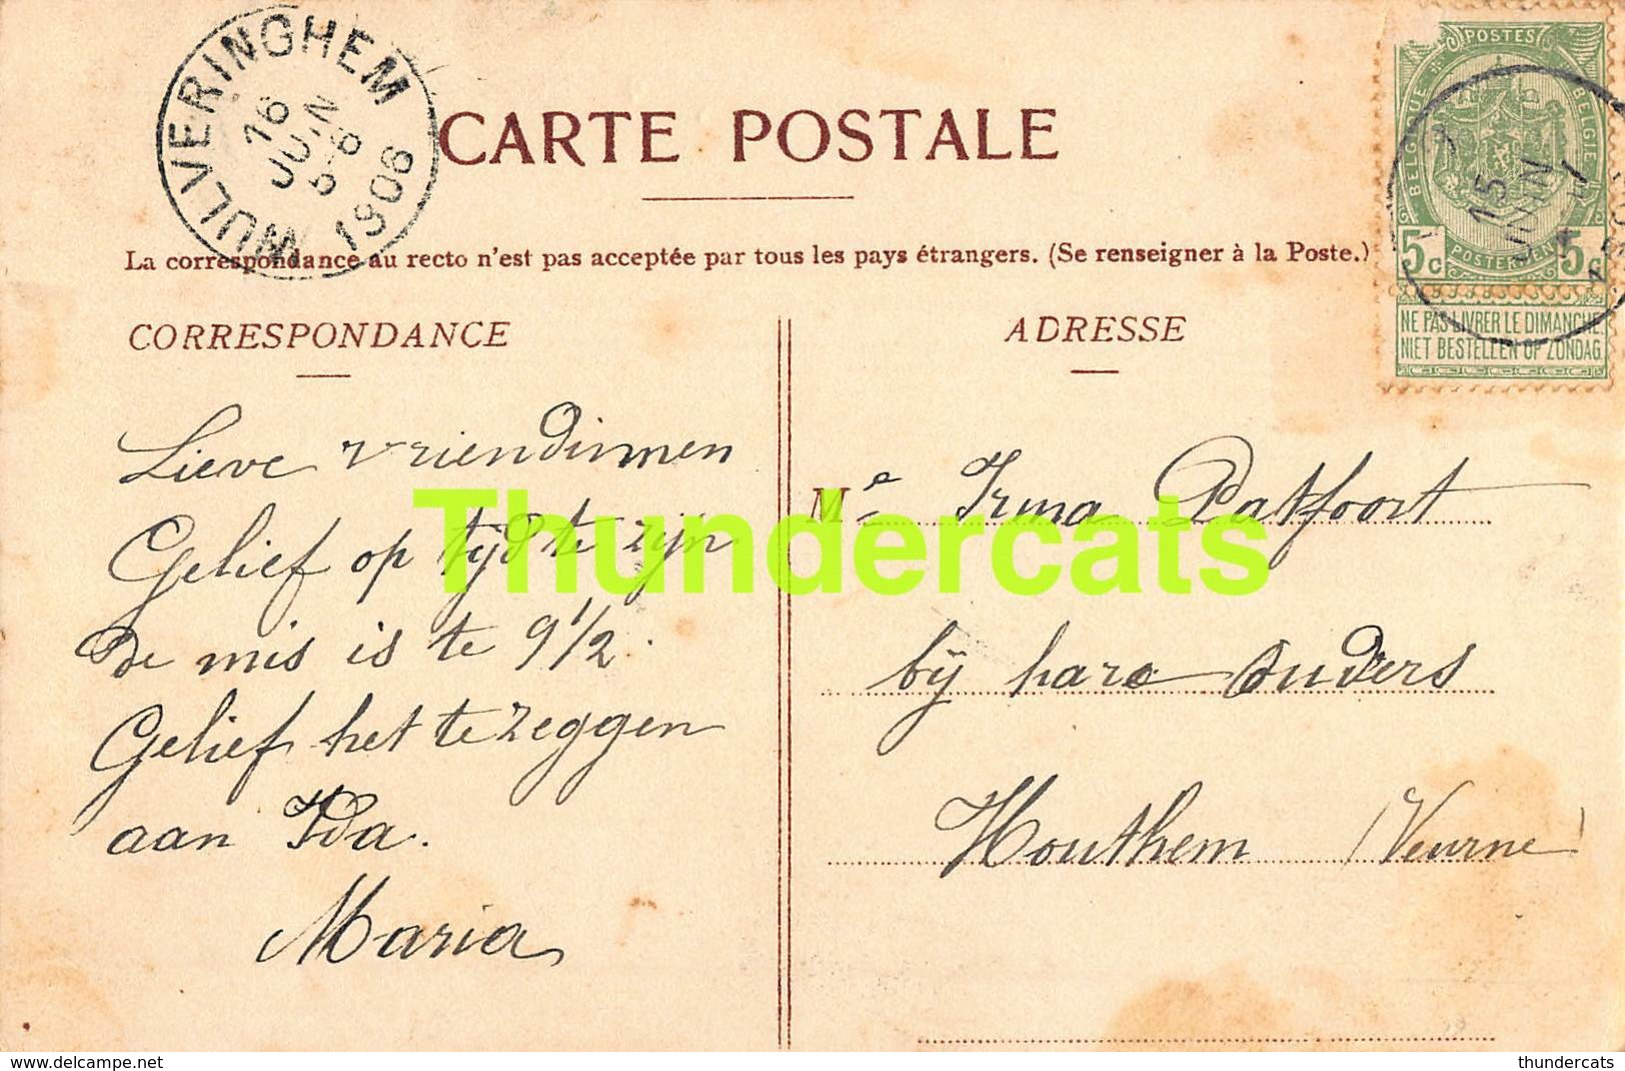 WULVERINGHEM
16
JUIN
5-6
1906
CARTE POSTALE
La correspondance au recto n'est pas acceptée par tous les pays étrangers. (Se renseigner à la Poste.)
POSTES
BELGIQUE
BELGIË
POSTERIJEN
5c 5c
NE PAS LIVRER LE DIMANCHE.
NIET BESTELLEN OP ZONDAG.
15
JUIN
CORRESPONDANCE
Lieve vriendinnen
Gelief op tijd te zijn
De mis is te 9 1/2.
Gelief het te zeggen
aan Ida.
Maria
ADRESSE
Me Irma Patfoort
bij hare Ouders
Houthem (Veurne)
Thundercats
delcampe.net
thundercats